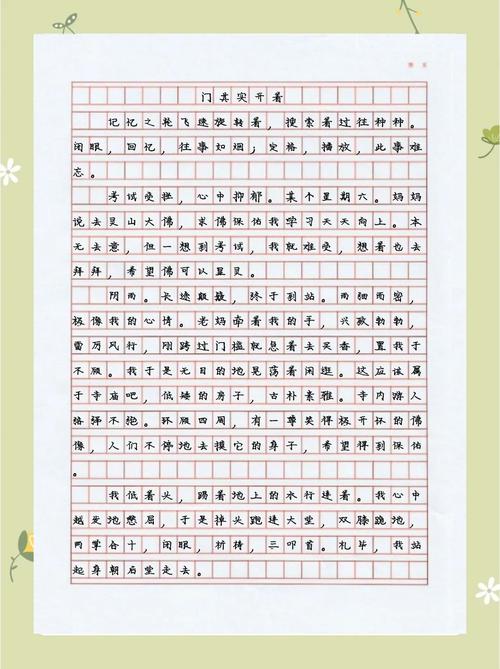 门其实开着
记忆之轮飞速旋转着，搜索着过往种种。
闭眼，回忆，往事如烟；定格，播放，此事难
忘。
考试受挫，心中抑郁。某个星期六。妈妈
说去灵山大佛，求佛保佑我学习天天向上。本
无去意，但一想到考试，我就难受，想着也去
拜拜，希望佛可以显灵。
阴雨。长途颠簸，终于到站。雨细而密，
极像我的心情。老妈牵着我的手，兴致勃勃，
雷厉风行，刚跨过门槛就急着去买香，置我于
不顾。我于是无目的地晃荡着闲逛。这应该属
于寺庙吧，低矮的房子，古朴素雅。寺内游人
络绎不绝。环顾四周，有一尊笑得极开怀的佛
像，人们不停地去摸它的身子，希望得到保佑
。
我低着头，踢着地上的水行进着。我心中
越发地憋屈，于是掉头跑进大堂，双膝跪地，
两掌合十，闭眼，祈祷，三叩首。礼毕，我站
起身朝后堂走去。